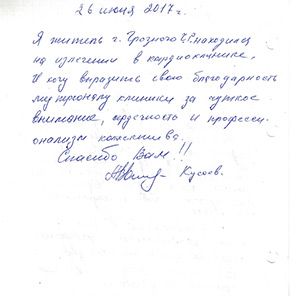 26 июня 2017 г.
Я житель г. Грозного ЧР. находился
на излечении в кардиоклинике.
И хочу выразить свою благодарность
персоналу клиники за чуткое
внимание, сердечность и професси-
онализм коллектива.
Спасибо Вам!!
Кусаев.